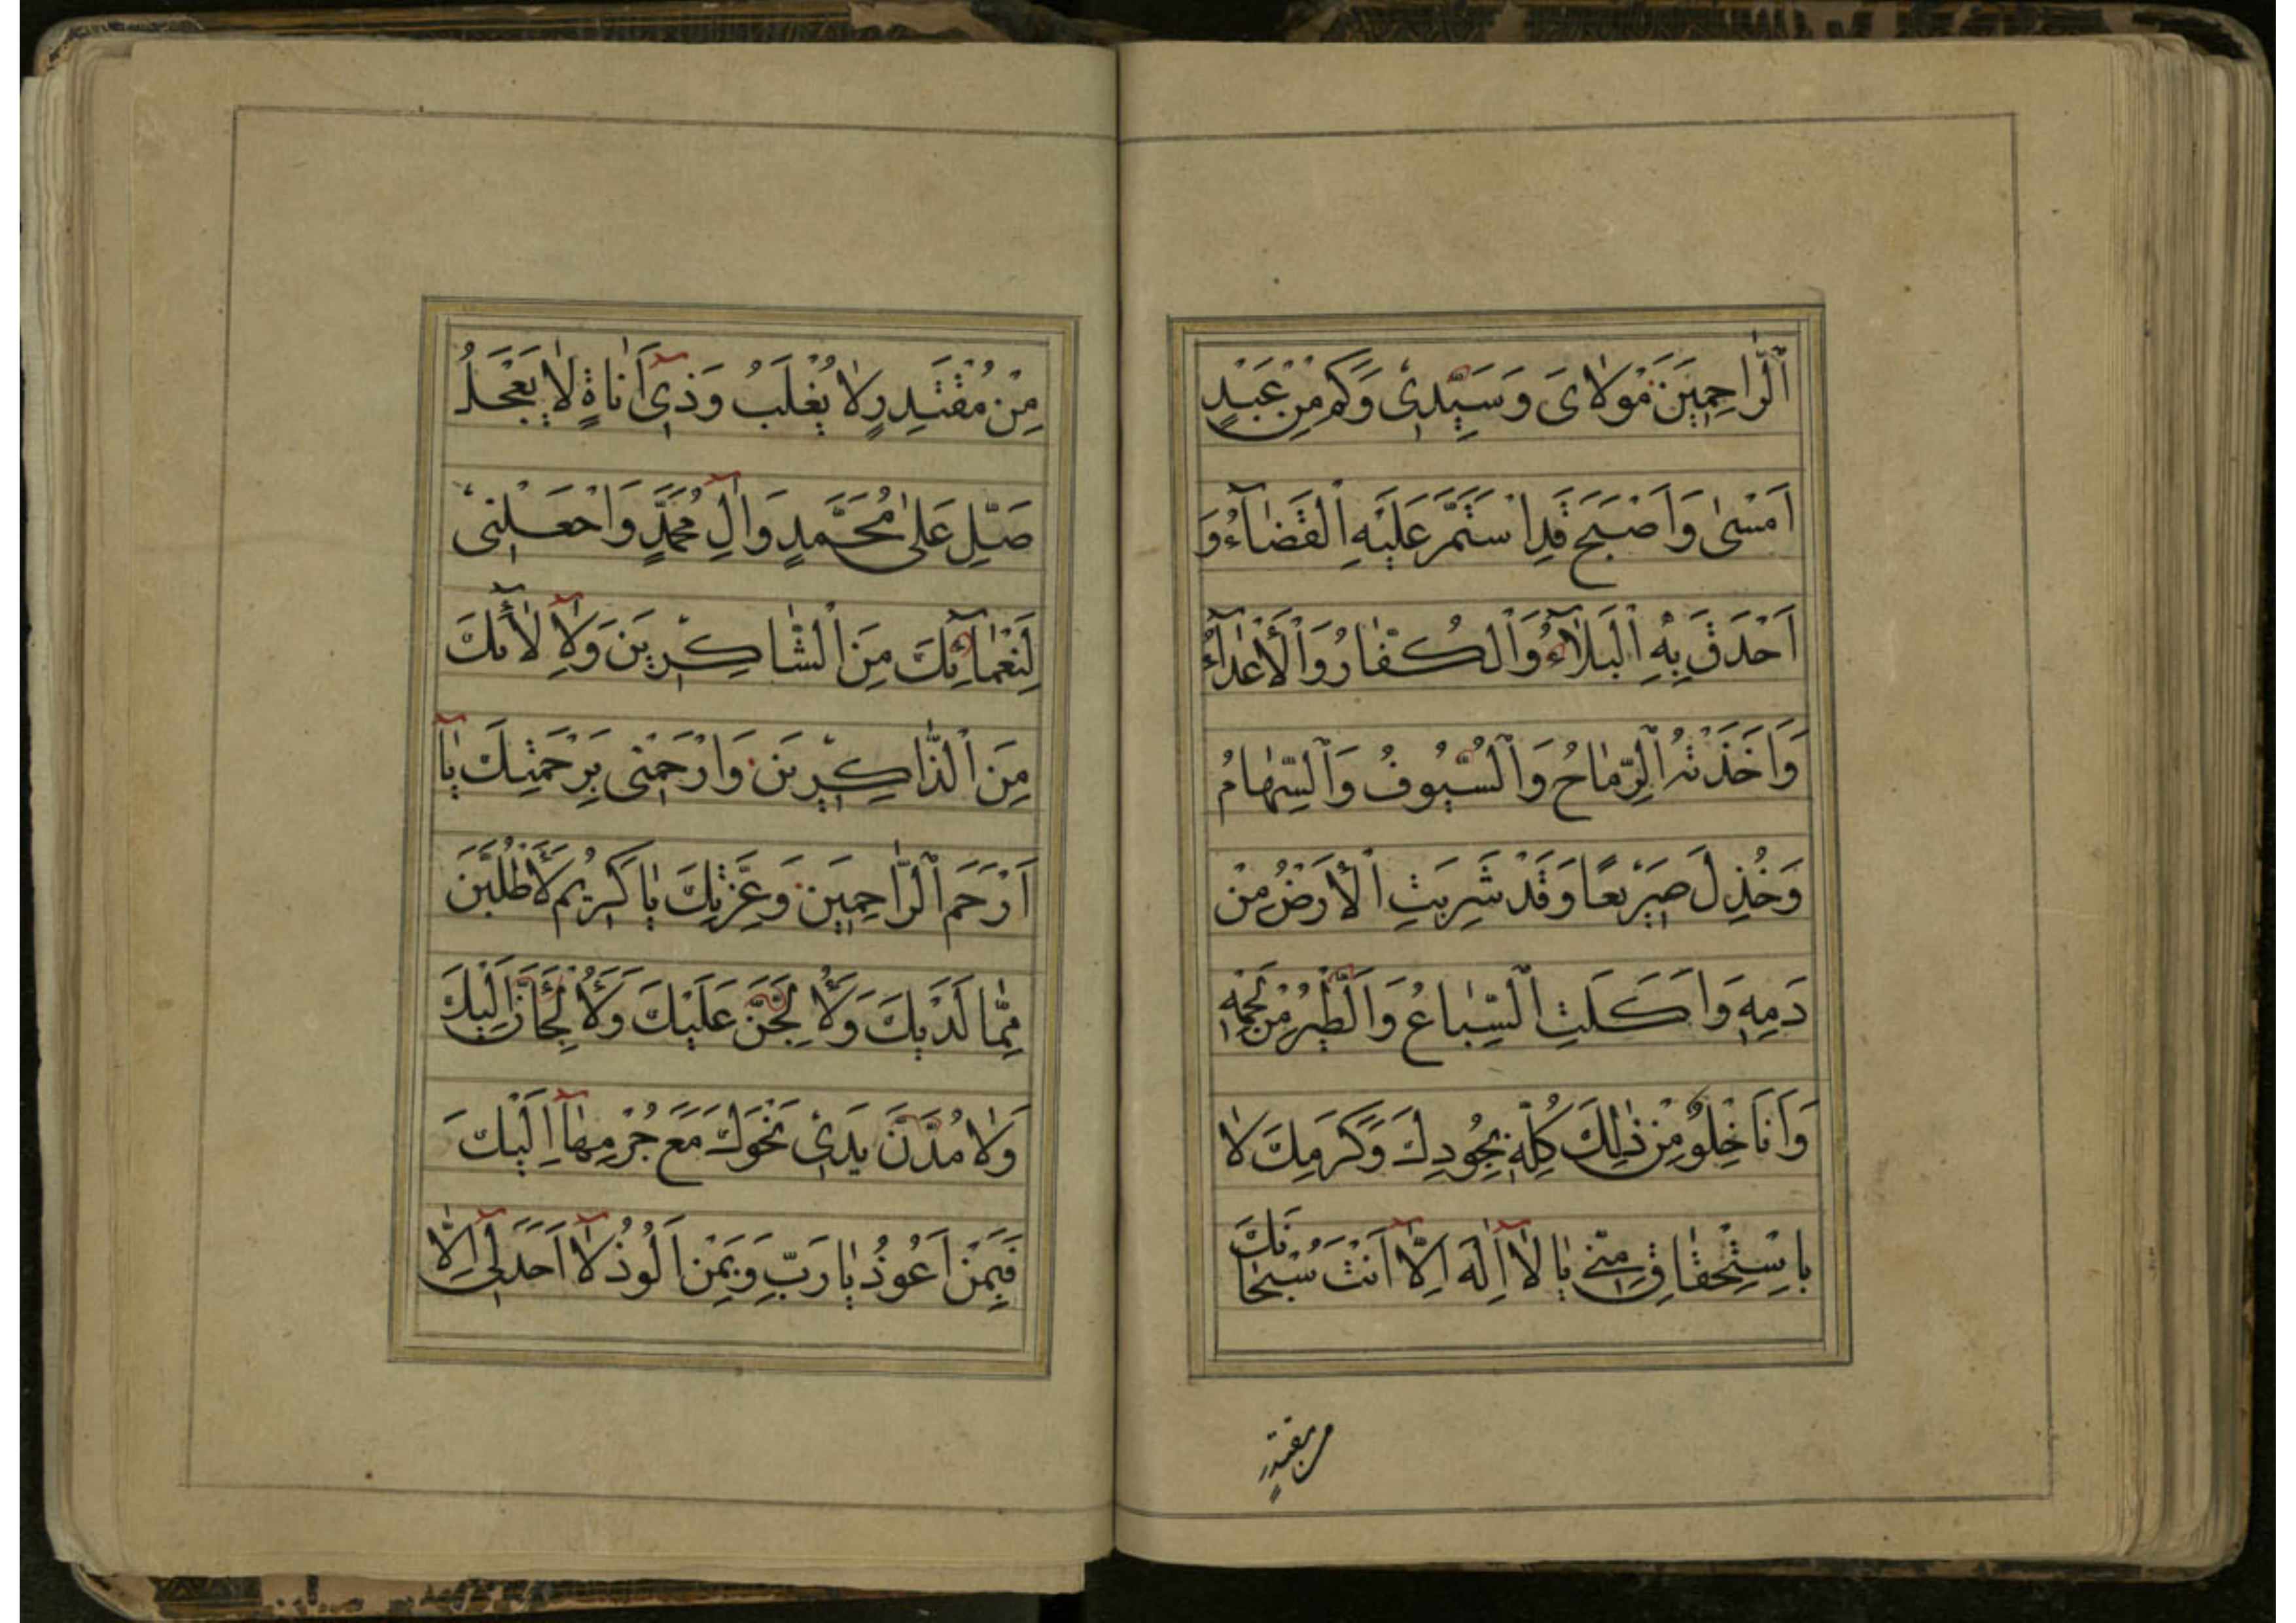 اَلرّٰاحِمِيَن مَوْلاٰىَ وَ سَيِّدِىْ وَكَمْ مِنْ عَبْدٍ
اَمْسىٰ وَ اَصْبَحَ قَدِ اسْتَمَرَّ عَلَيْهِ الْقَضٰآءُ وَ
اَحْدَقَ بِهِ الْبَلاٰۤءُ وَ الْكُفّٰارُ وَ الْأَعْدٰآءُ
وَ اَخَذَتْهُ الرِّمٰاحُ وَ السُّيُوفُ وَ السِّهٰامُ
وَ خُذِلَ صَرِيْعًا وَ قَدْ شَرِبَتِ الْأَرَضُ مِنْ
دَمِهِ وَ اَكَلَتِ السِّبٰاعُ وَ الطَّيْرُ مِنْ لَحْمِهِ
وَ اَنَا خِلْوٌ مِنْ ذٰلِكَ كُلِّهِ بِجُودِكَ وَ كَرَمِكَ لاٰ
بِاسْتِحْقٰاقٍ مِنّى يٰا لاٰۤ اِلٰهَ اِلاّٰۤ اَنْتَ سُبْحٰانَكَ
من مقتدرٍ
مِنْ مُقْتَدِرٍ لاٰ يُغْلَبُ وَ ذِىْۤ اَنٰاةٍ لاٰ يَعْجَلُ
صَلِّ عَلىٰ مُحَمَّدٍ وَ اٰلِ مُحَمَّدٍ وَ اجْعَلْنِىْ
لِنَعْمٰاۤئِكَ مِنَ الْشّٰاكِرِيْنَ وَ لاِٰۤلاٰۤئِكَ
مِنَ الْذّٰاكِرِيْنَ وَ ارْحَمْنِى بِرَحْمَتِكَ يٰاۤ
اَرْحَمَ الْرّٰاحِمِيَن وَ عِزَّتِكَ يٰا كَرِيْمُ لَأَطْلُبَنَّ
مِمّٰا لَدَيْكَ وَ لَأُلِحَّنَّ عَلَيْكَ وَ لَأَلْجَأَنَّ اِلَيْكَ
وَ لاَٰمُدَّنَّ يَدَىْ نَحْوَكَ مَعَ جُرْمِهٰاۤ اِلَيْكَ
فَبِمَنْ اَعُوْذُ يٰا رَبِّ وَ بِمَنْ اَلُوْذُ لاٰۤ اَحَدَ لِىْۤ اِلاّٰ